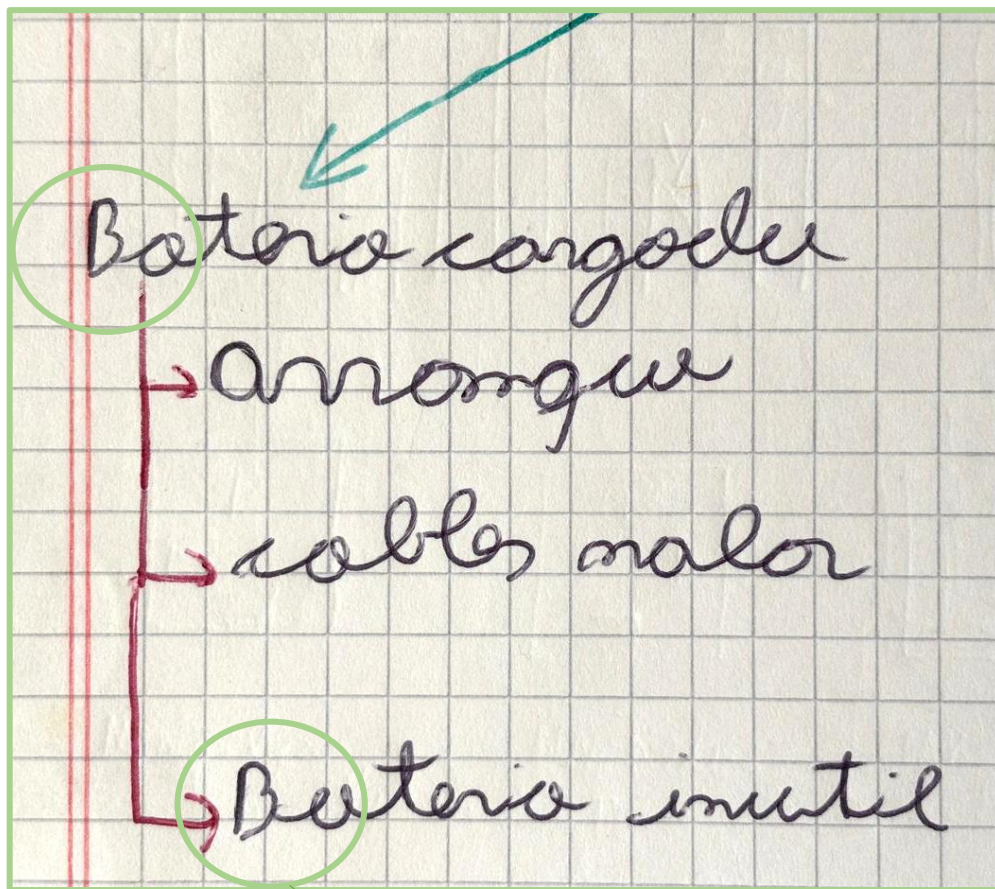 Bateria cargada
Arranque
cables malos
Bateria inutil